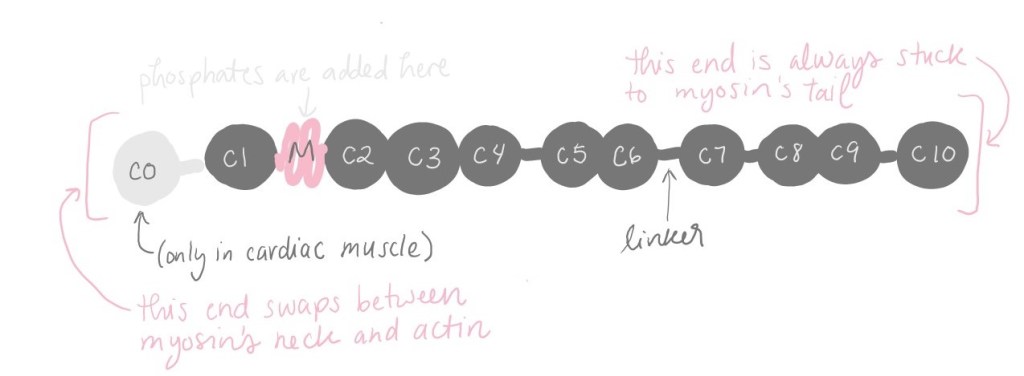 phosphates are added here
this end is always stuck
to myosin's tail
C0 C1 M C2 C3 C4 C5 C6 C7 C8 C9 C10
(only in cardiac muscle)
linker
this end swaps between
myosin's neck and actin